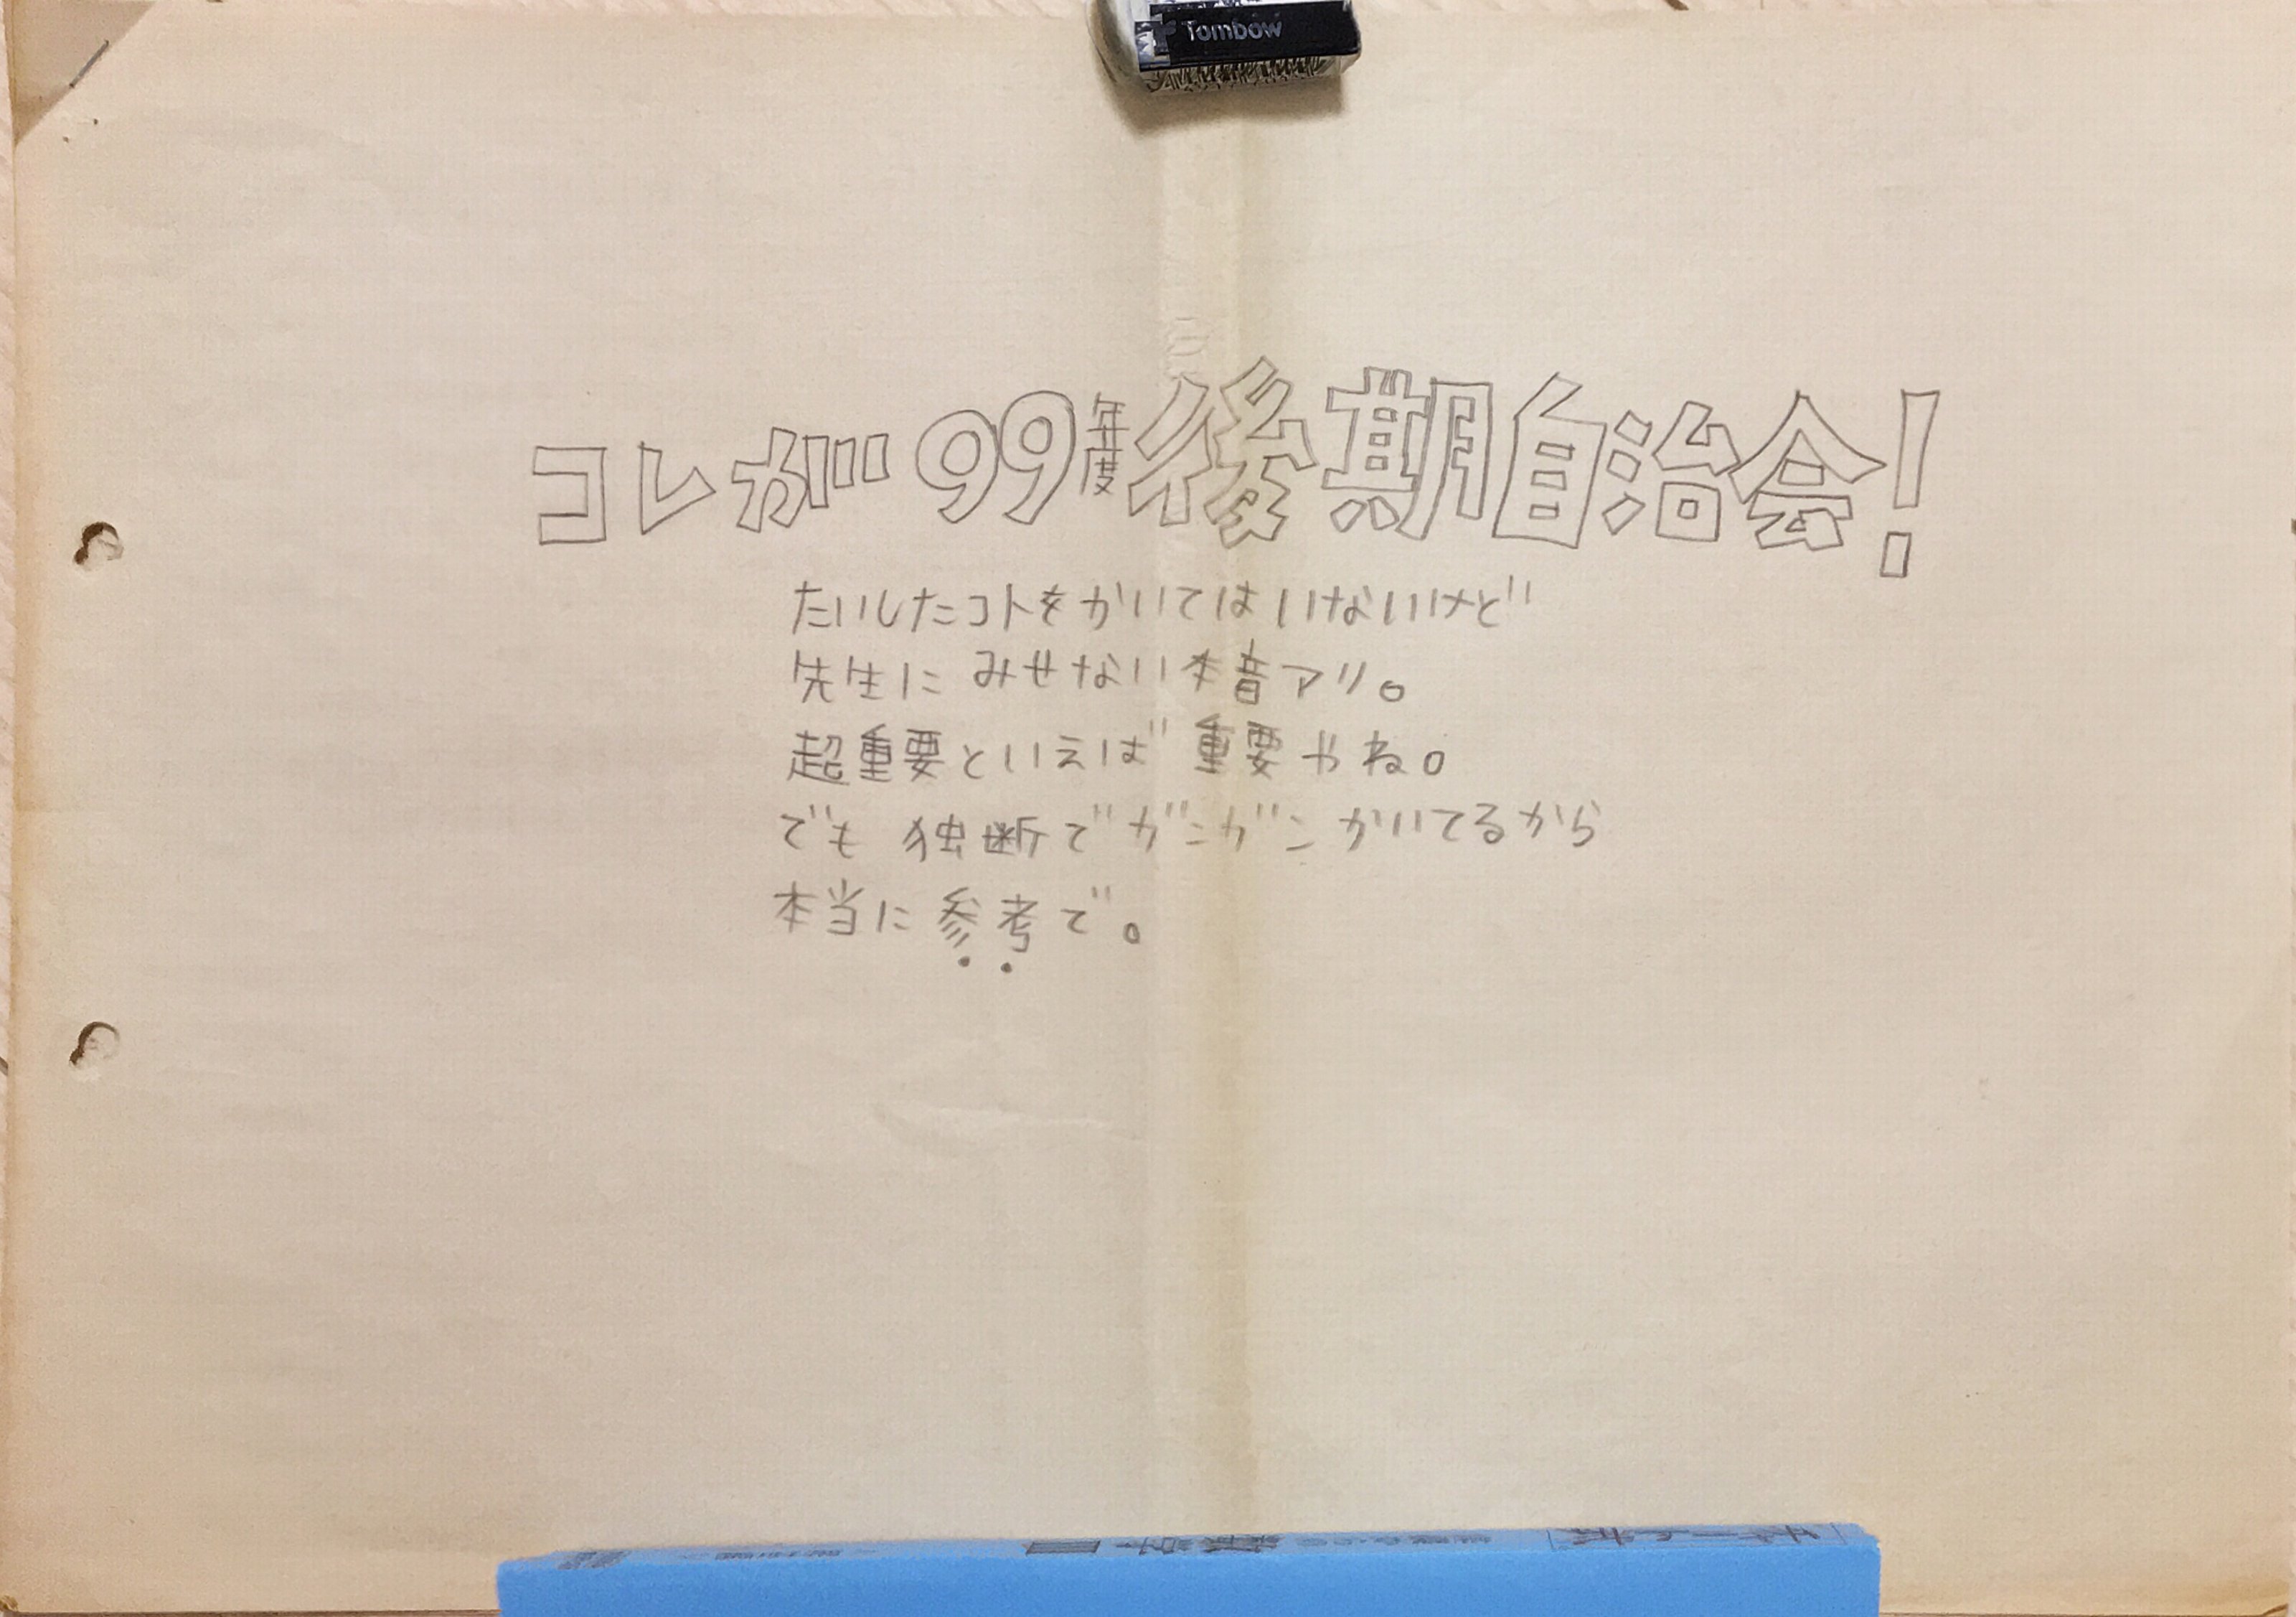 Tombow
コレが99年度後期自治会!
たいしたコトをかいてはいないけど
先生にみせない本音アリ。
超重要といえば重要やね。
でも独断でガンガンかいてるから
本当に参考で。